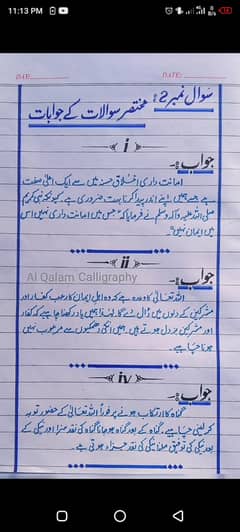 11:13 PM
DATE:
DATE:
سوال نمبر 2: مختصر سوالات کے جوابات
i
جواب:۔
امانت داری اخلاقِ حسنہ میں سے ایک اعلیٰ صفت
ہے جسے ہمیں اپنے اندر پیدا کرنا بہت ضروری ہے۔ کیونکہ نبی کریم
صلی اللہ علیہ وآلہ وسلم نے فرمایا کہ "جس میں امانت داری نہیں اس
میں ایمان نہیں"۔
ii
جواب:۔
Al Qalam Calligraphy
اللہ تعالیٰ کا وعدہ ہے کہ وہ اہلِ ایمان کا رعب کفار اور
مشرکین کے دلوں میں ڈال دے گا۔ لہٰذا ہمیں یاد رکھنا چاہیے کہ کفار
اور مشرکین بزدل ہوتے ہیں ہمیں انکی دھمکیوں سے مرعوب نہیں
ہونا چاہیے۔
iv
جواب:۔
گناہ کا ارتکاب ہونے پر فوراً اللہ تعالیٰ کے حضور توبہ
کر لینی چاہیے۔ گناہ کے بعد گناہ ہو جانا گناہ کی نقد سزا اور نیکی کے
بعد نیکی کی توفیق ملنا نیکی کی نقد جزاء ہوتی ہے۔